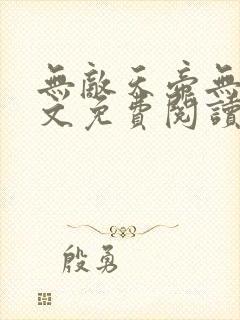 無敵天帝無
文免費閱讀
殷勇